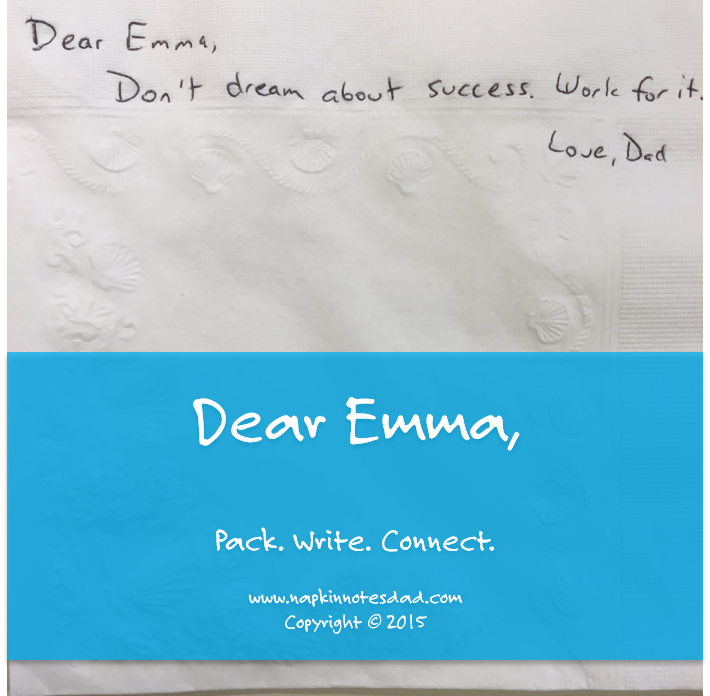 Dear Emma,
Don't dream about success. Work for it.
Love, Dad
Dear Emma,
Pack. Write. Connect.
www.napkinnotesdad.com
Copyright © 2015